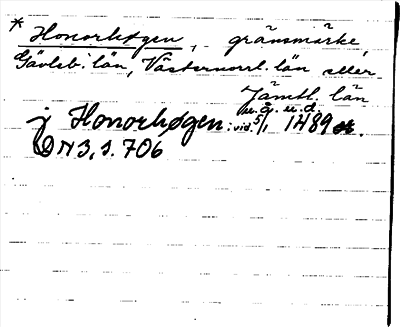 * Honorhøgen, gränsmärke,
Gävleb. län, Västernorrl. län eller
Jämtl. län
u. å. u. d.
j Honorhøgen: vid. 5/1 1489
DN 3, s. 706